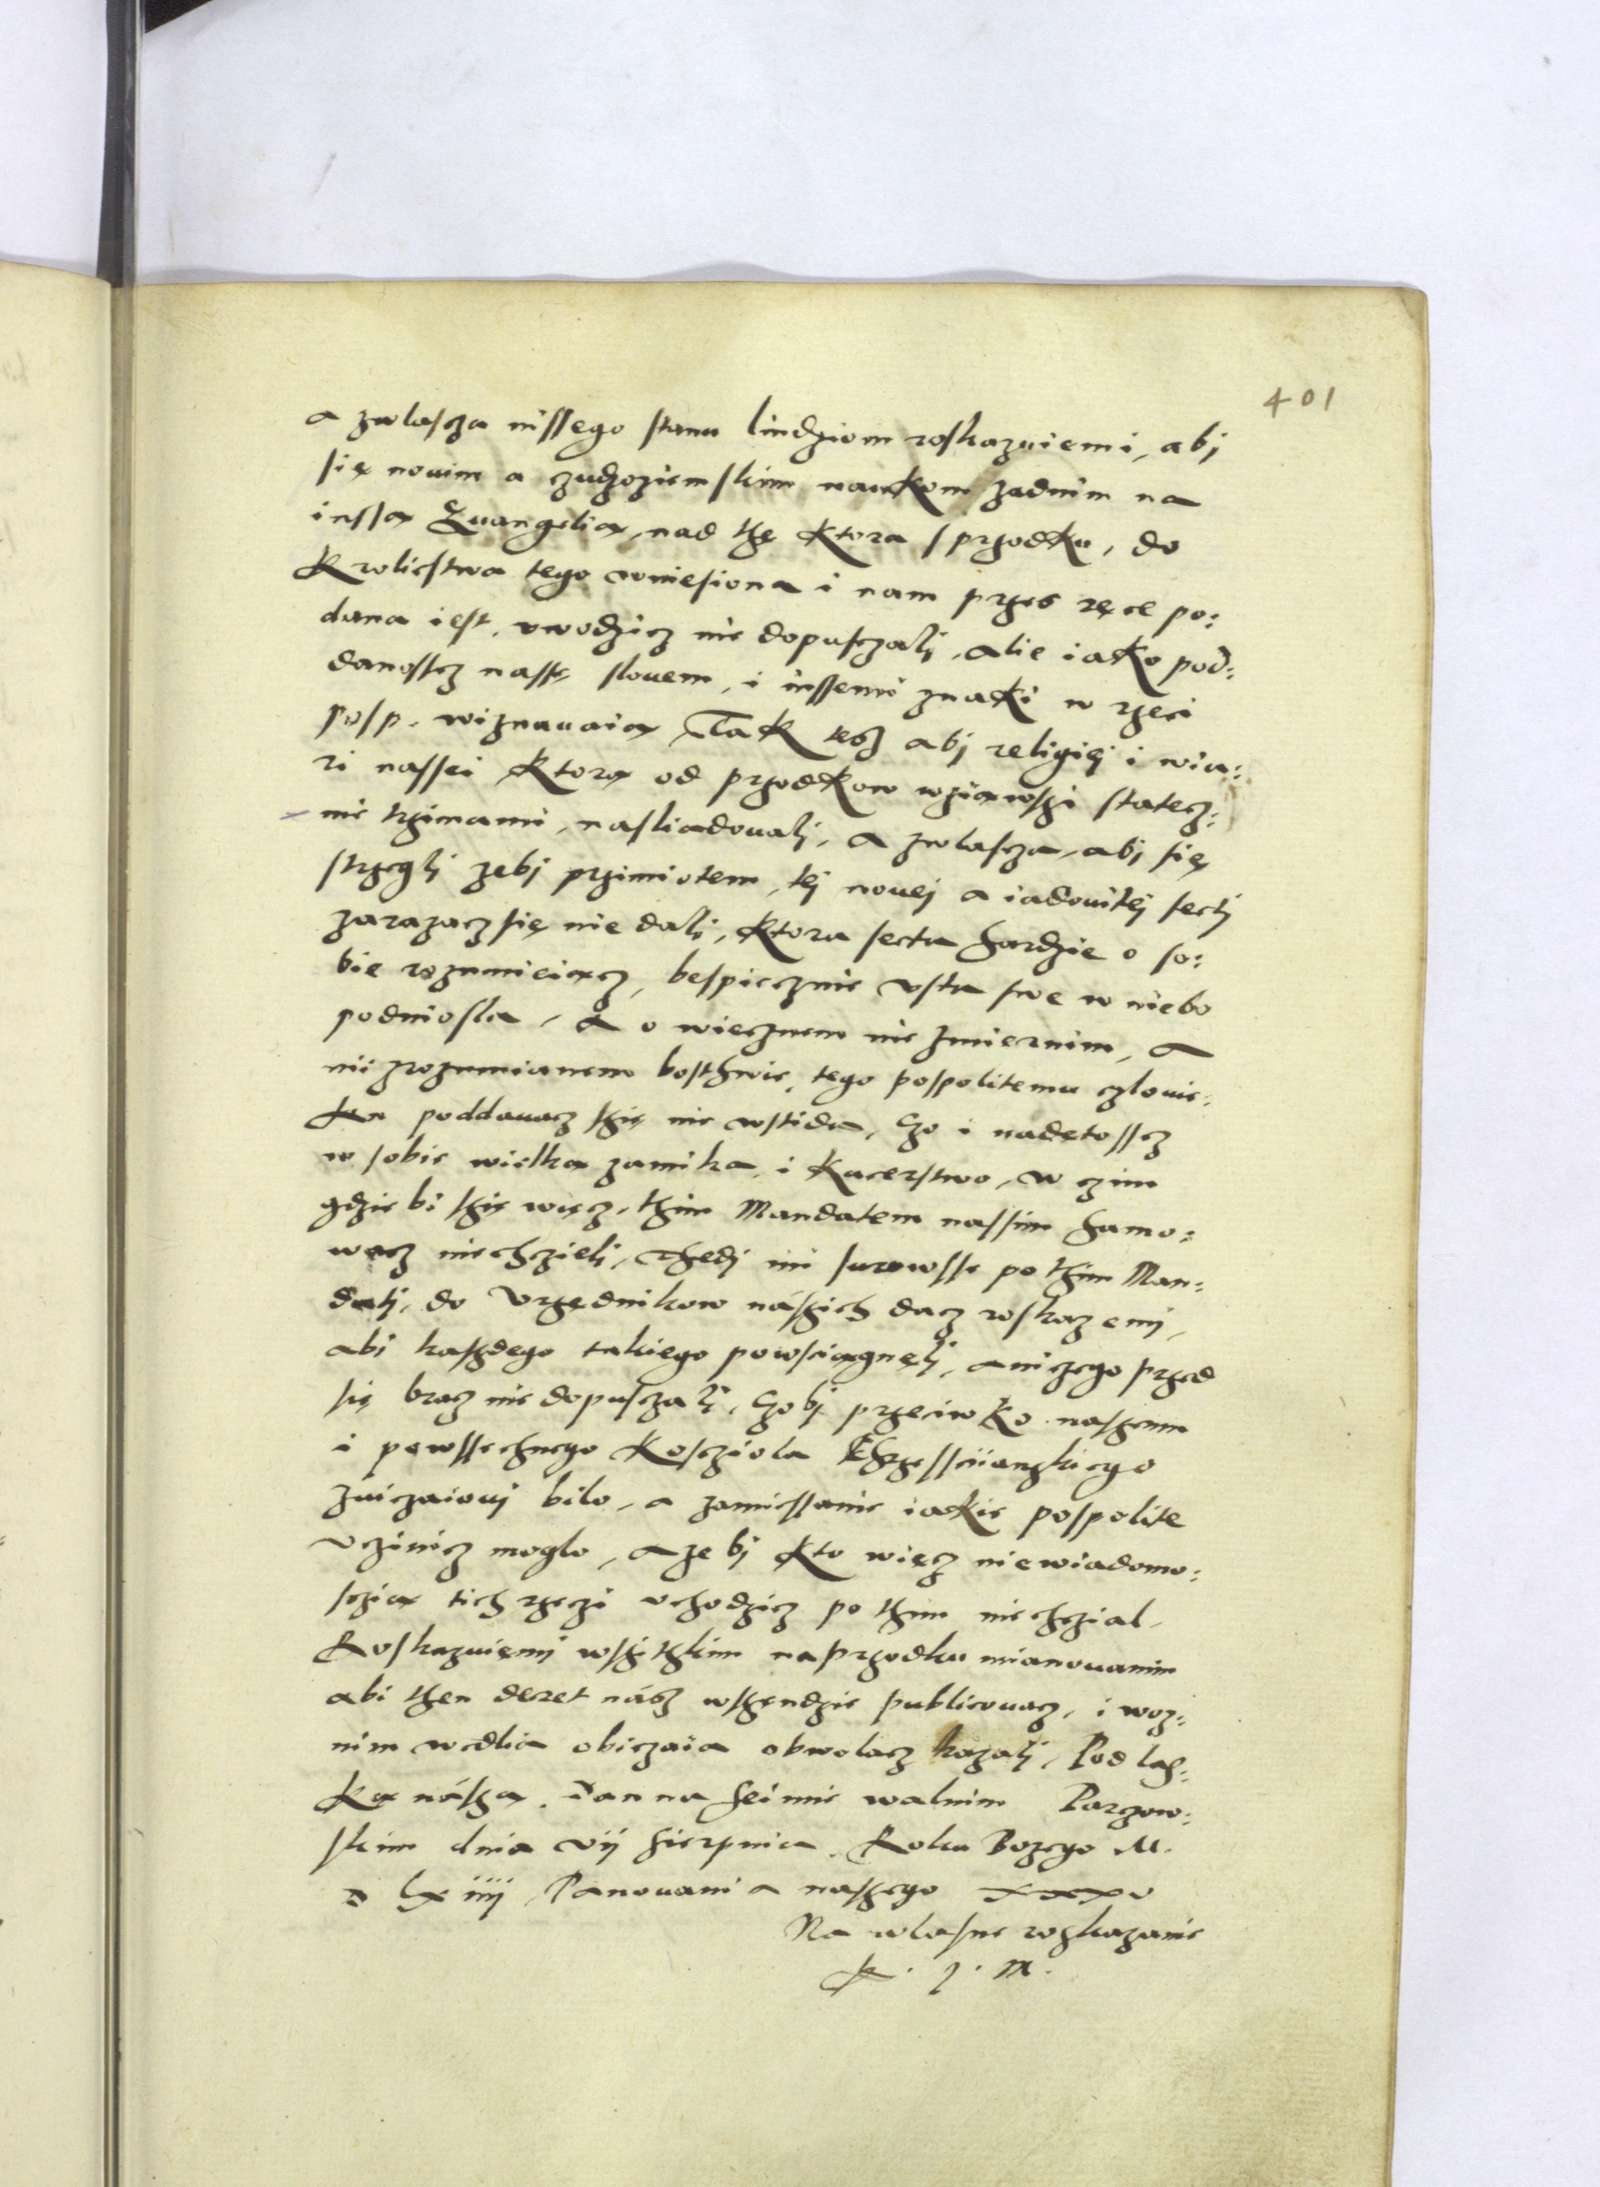 401
a zwlascza nissego stanu liudziom roskazuiemi, abj
się nouim a czudzoziemskim naukom zadnim na
inssą Ewangelią, nad thę ktora sprzodku, do
Krolestwa tego wniesiona i nam przes ręce po:
dana iest, uwodzicz nie dopusczalj, alie iako pod:
danoscz nassę slouem, i inssemi znaki w rzeci
posp. wiznauaią Tak tesz abj religięj i wia:
ri nassei ktorą od przodkow wziąwszi statecz:
nie trzimami, nasliadoualj, a zwlascza, abj się
strzeglj zebj przimiotem, tej nouej a iadouitej sectj
zarazacz się nie dalj, ktora secta hardzie o so:
bie rozumieiącz, bespiecznie usta swe w niebo
podniosla, a o wiecznem nie zmiernim, a
nie zrozumianem bosthwie, tego pospolitemu czlowie:
ku poddauacz thię nie wstida, czo i nadętosscz
w sobie wielką zamika, i kacerstwo, w czim
gdzie bi thię więcz, thim Mandatem nassim hamo:
wacz niechczielj, thedj mi surowsse po thim Man:
datj, do Urzędnikow nászich dacz roskazemj,
abi kaszdego takiego powsciągnęlj, a niczego przed
się bracz nie dopusczalj, czobj przeciwko naszemu
i powssechnego Kosciola Chrzessciianskiego
zwiczaiouj bilo, a zamiessanie iakie pospolite
uczinicz moglo, a zebj kto więcz niewiadomo:
scią tich rzeczi uchodzicz po thim nie chczial
Roskazuięmj wszitzkim na przodku mianouanim
abi then decret nász wszendzie publicouacz, i woz:
nim wedlia obiczaia obwolacz kazalj, Pod las:
ką nászą. Dan na seimie walnim Parczow:
skim dnia vij sierpnia. Roku Bozego M.
D lxiiij, Panouania naszego xxxv
Na wlasne rozkazanie
K. J. M.